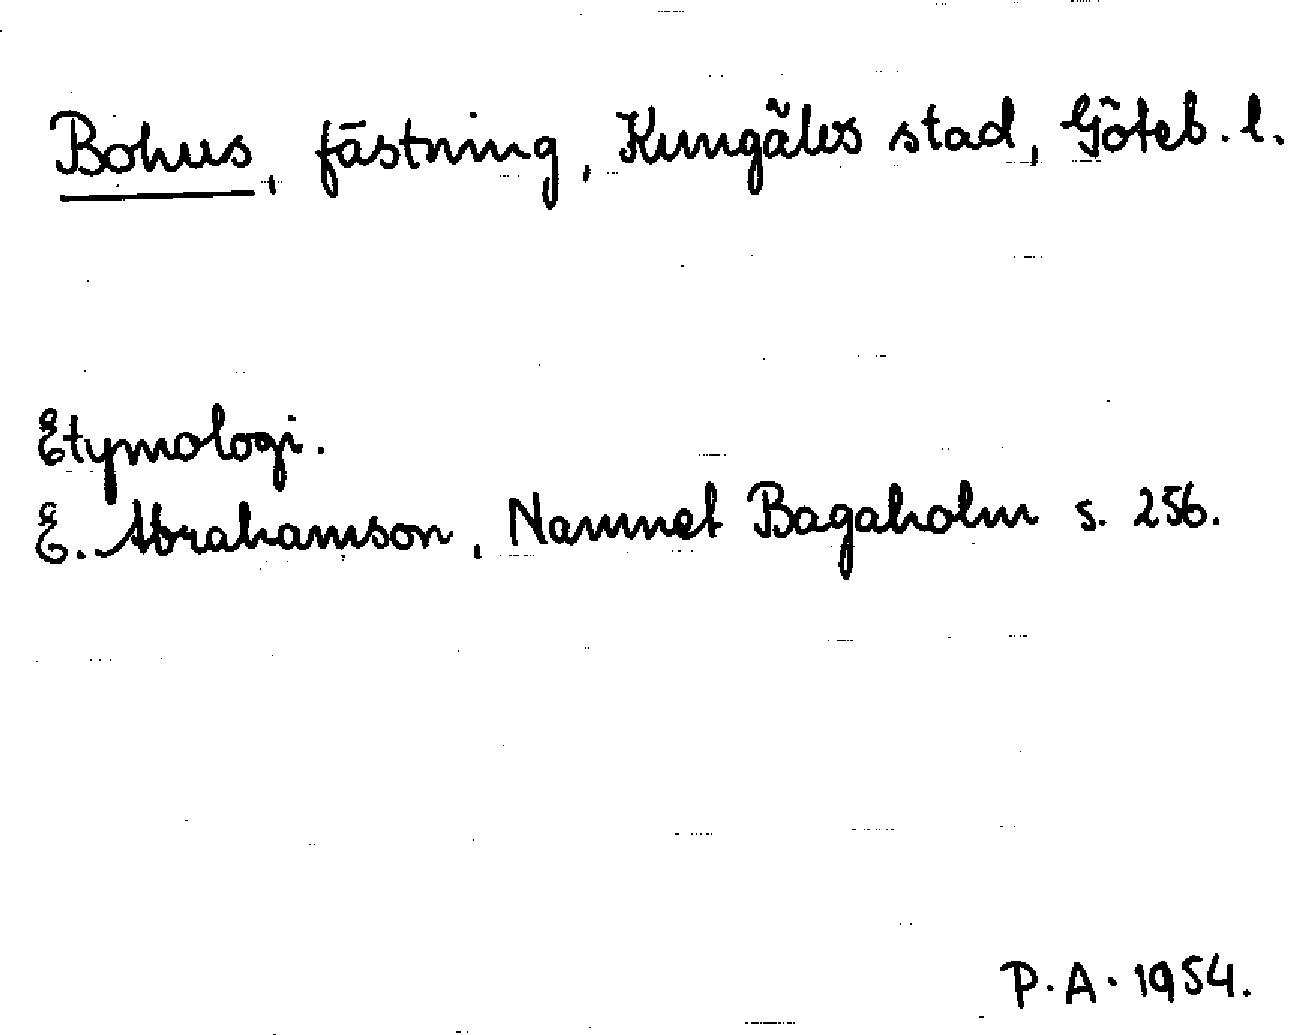 Bohus, fästning, Kungälvs stad, Göteb. l.
Etymologi.
E. Abrahamson, Namnet Bagaholm s. 256.
P. A. 1954.